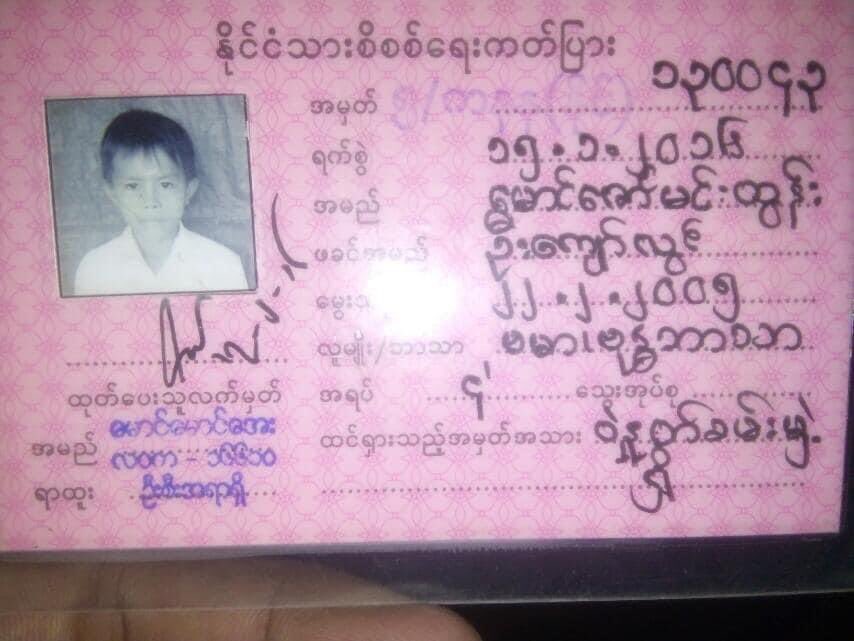 နိုင်ငံသားစိစစ်ရေးကတ်ပြား
အမှတ် ၅/ကနန(နိုင်) ၁၃၀၀၄၃
ရက်စွဲ ၁၅.၁.၂၀၁၆
အမည် မောင်ဇော်မင်းထွန်း
ဖခင်အမည် ဦးကျော်လွင်
မွေး ၂၂.၂.၂၀၀၅
လူမျိုး/ဘာသာ ဗမာ၊ဗုဒ္ဓဘာသာ
အရပ် ၄' သွေးအုပ်စု
ထင်ရှားသည့်အမှတ်အသား ဝဲ ခမ်းမှဲ့ ရှိ
ထုတ်ပေးသူလက်မှတ်
အမည် မောင်မောင်အေး
လဝက - ၁၆၆၁၀
ရာထူး ဦးစီးအရာရှိ